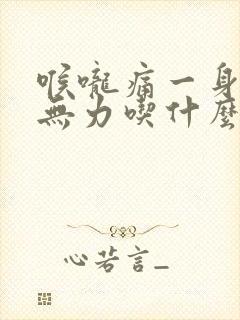 喉嚨痛一身
無力喫什麼
心若言_